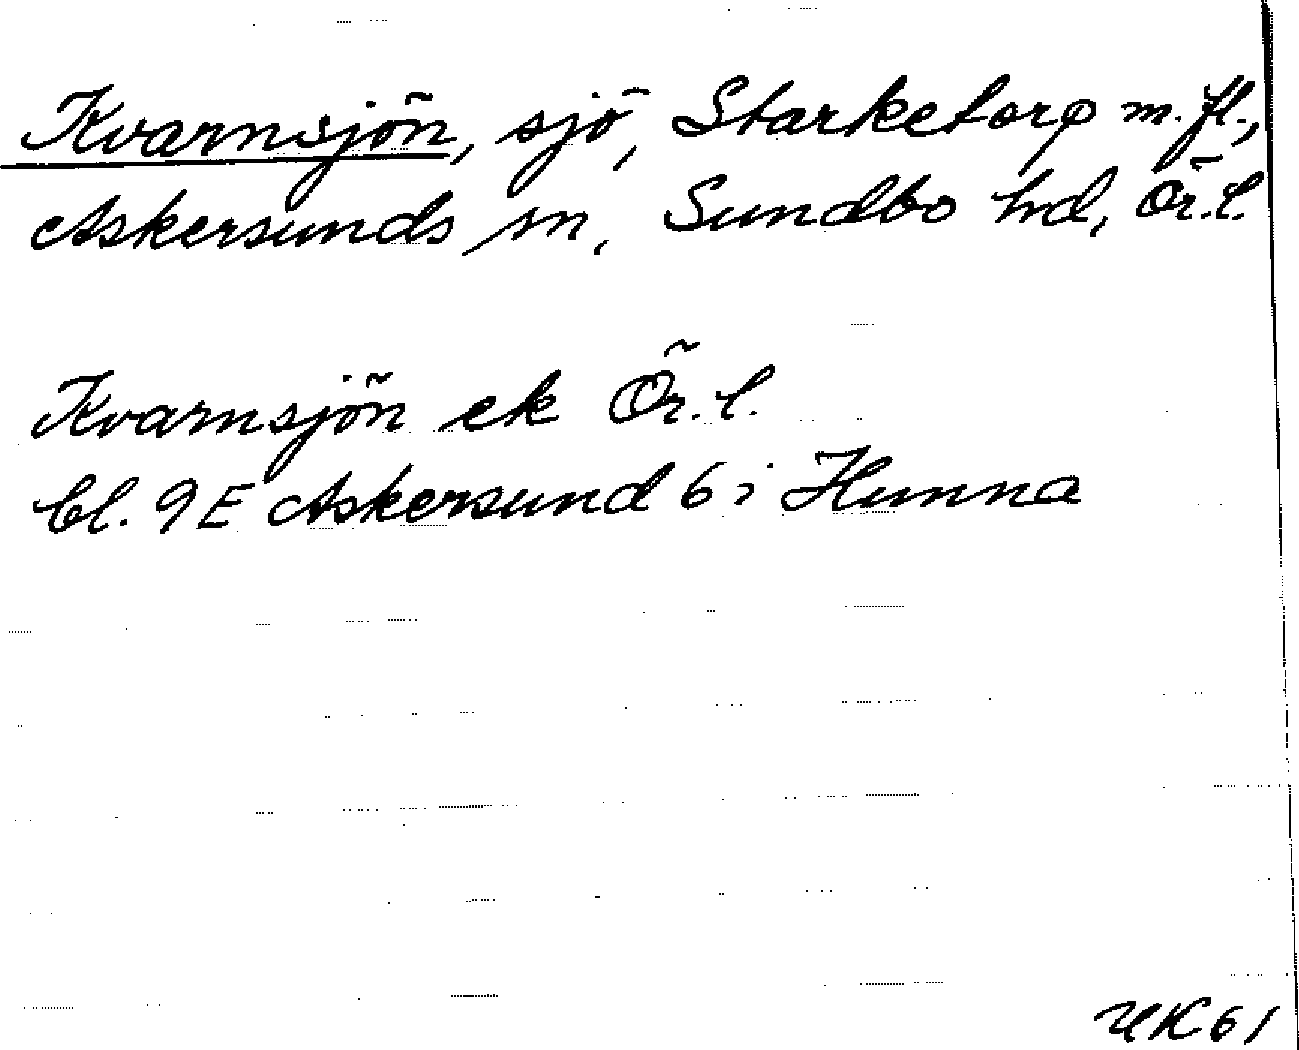 Kvarnsjön, sjö, Starketorp m.fl.,
Askersunds sn, Sundbo hd, Ör.l.
Kvarnsjön ek Ör.l.
bl. 9E Askersund 6 i Hunna
UK61